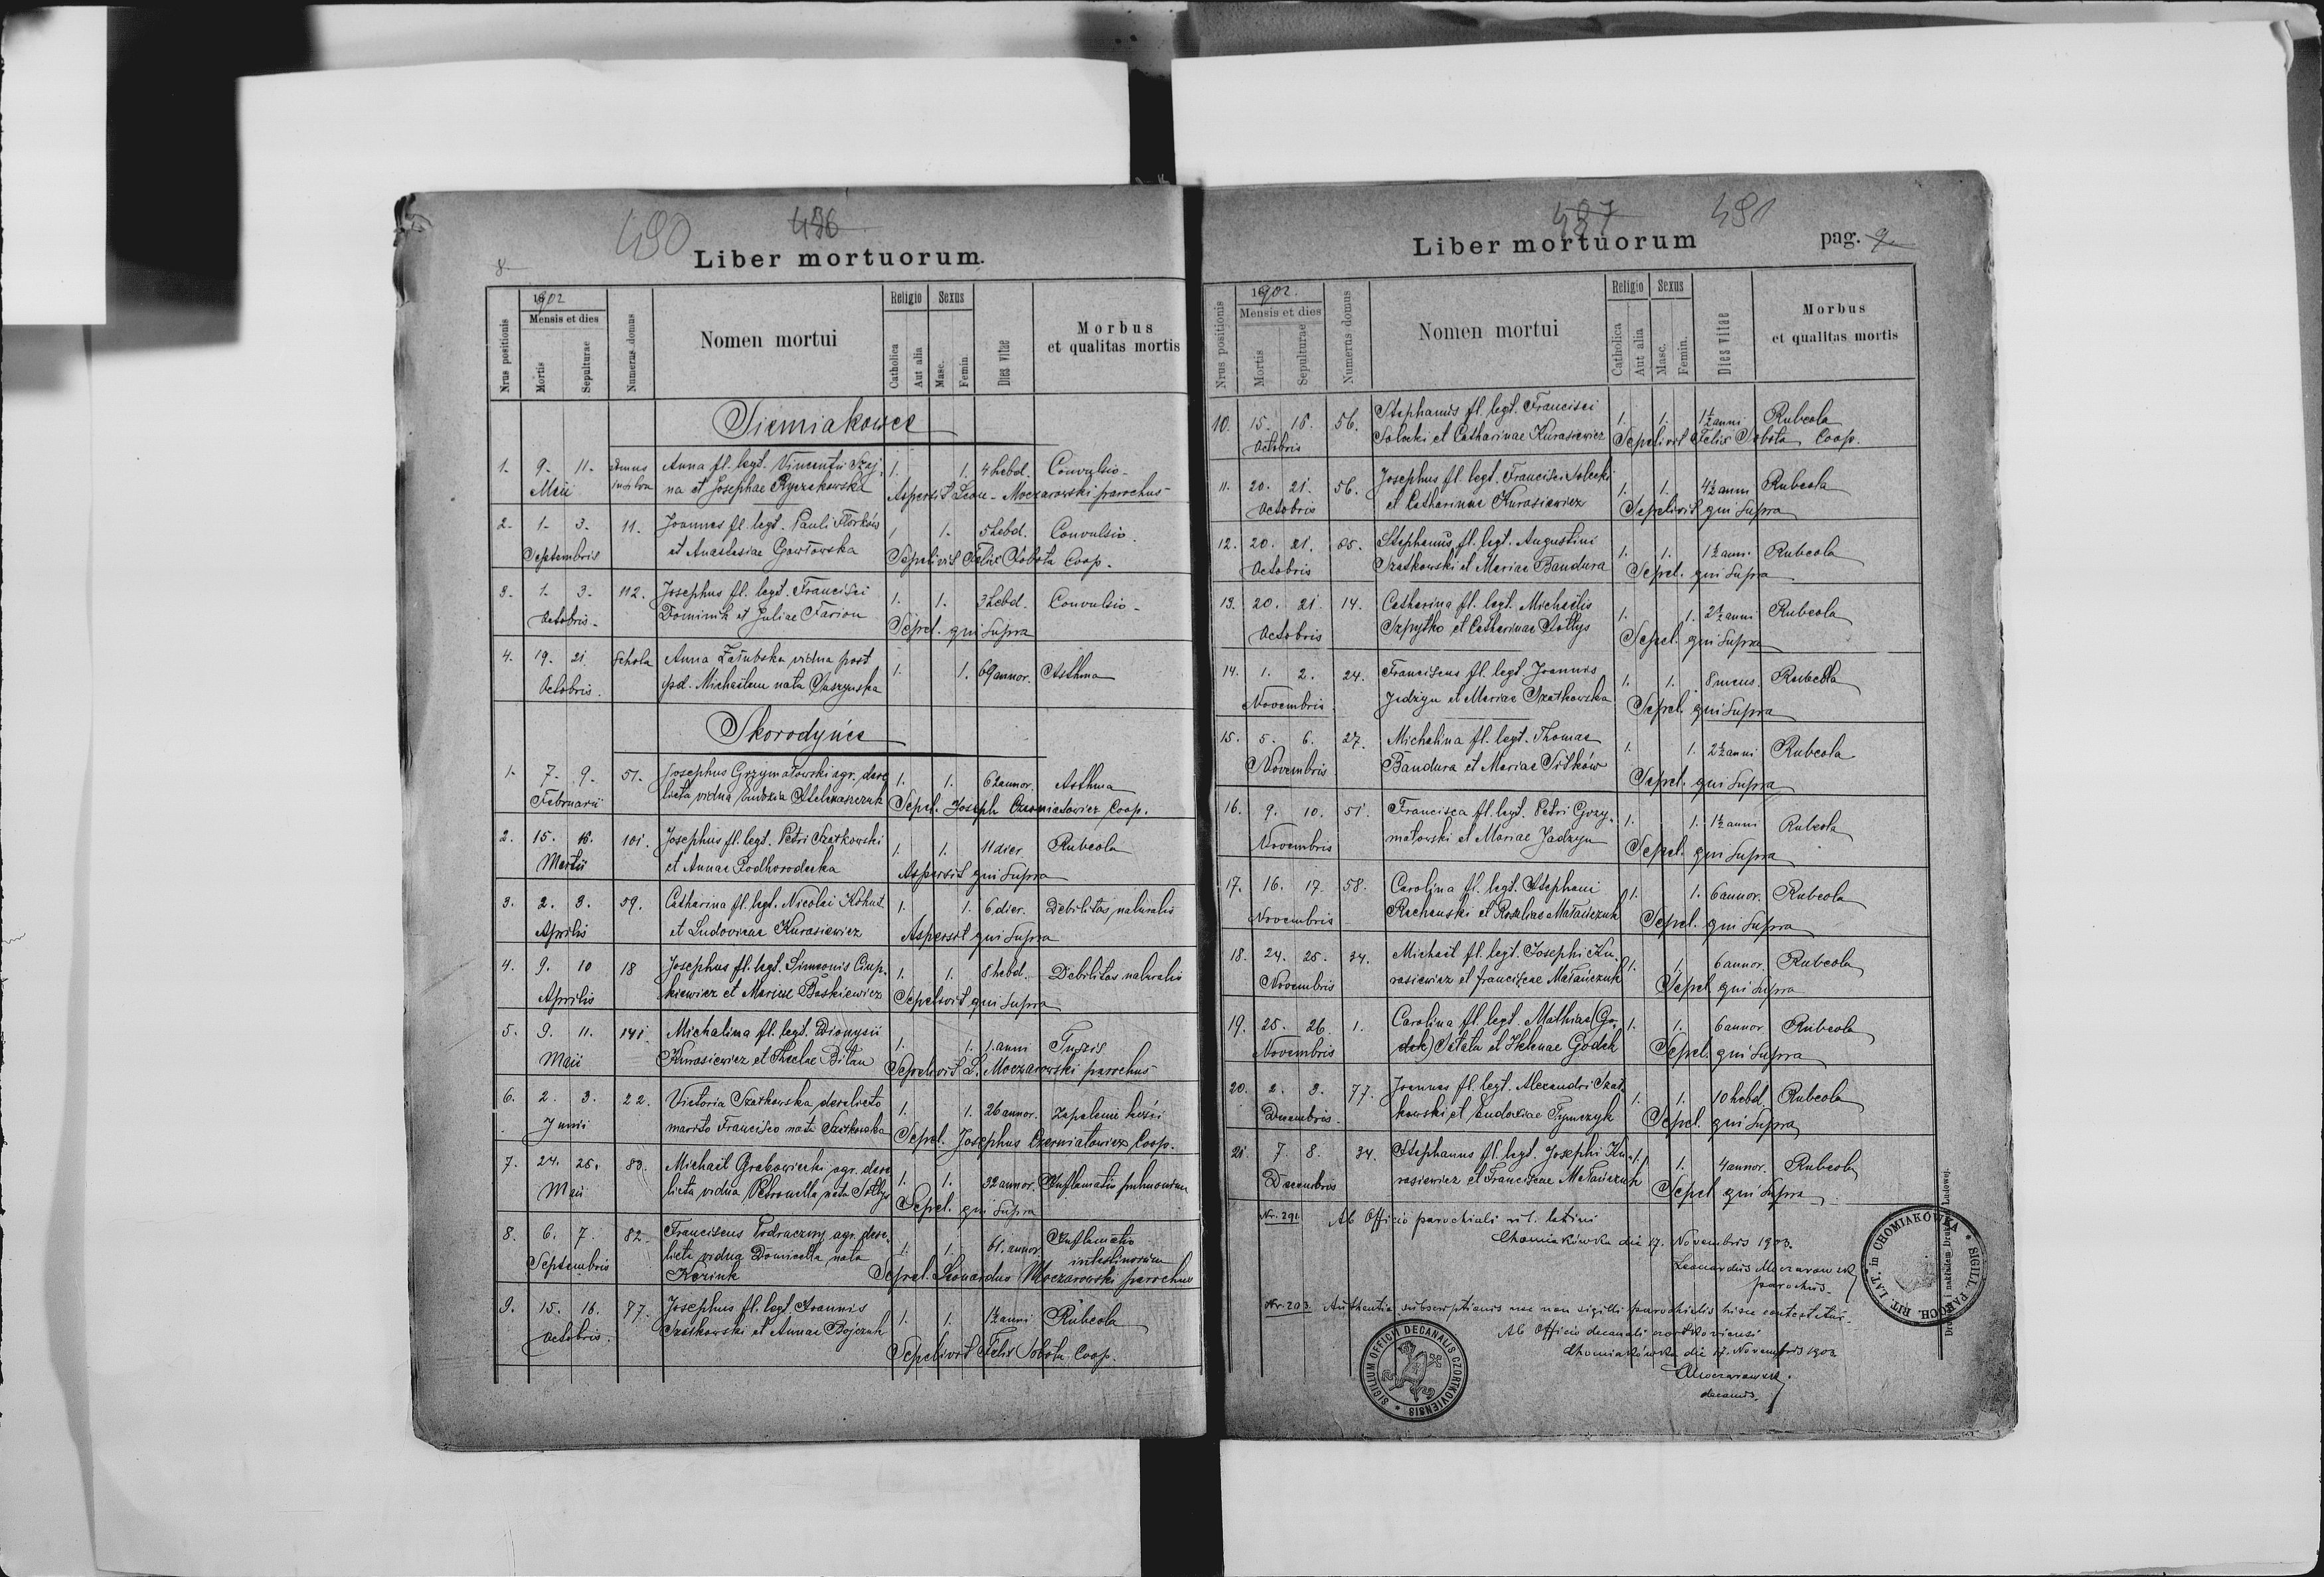 490 436
Liber mortuorum.
8
1902
Mensis et dies
Nrus positionis
Mortis
Sepulturae
Numerus domus
Nomen mortui
Religio
Catholica
Aut alia
Sexus
Masc.
Femin
Dies vitae
Morbus
et qualitas mortis
Siemiakowce
1. 9. 11. domus Anna fl. legt. Vincentii Szaj- 1. 1. 4 hebd. Convulsio
Maii in silva na et Josephae Ryczakowska Aspersit Leon. Moczarowski parochus
2. 1. 3. 11. Joannes fl. legt. Pauli Florków 1 1. 5 hebd. Convulsio.
Septembris et Anastasiae Gawłowska Sepelivit Felix Sobota Coop.
3. 1. 3. 112. Josephus fl. legt. Francisci 1. 1. 3 hebd. Convulsio
Octobris Dominik et Juliae Farion Sepel. qui supra
4. 19. 21. Schola Anna Załubska vidua post 1. 1. 69 annor. Asthma
Octobris. pd. Michaelem nata
Skorodyńce
1. 7. 9. 51. Josephus Grzymałowski agr. dere 1. 1. 62 annor. Asthma
Februarii licta vidua Eudoxia Stelmaszczuk Sepel. Joseph Czerniatowicz Coop.
2. 15. 16. 101. Josephus fl. legt. Petri Szatkowski 1. 1. 11 dier Rubeola
Martii et Annae Podhorodecka Aspersit qui supra
3. 2. 3. 59. Catharina fl. legt. Nicolai Kohut 1. 1. 6 dier. Debilitas naturalis
Aprilis et Ludovicae Kurasiewicz Aspersit qui supra
4. 9. 10 18 Josephus fl. legt. Simeonis Ciup- 1. 1. 8 hebd. Debilitas naturalis
Aprilis kiewicz et Mariae Baskiewicz Sepelivit qui supra
5. 9. 11. 141. Michalina fl. legt. Dionysii 1. 1. 1. anni Tussis
Maii Kurasiewicz et Theclae Bilan Sepelivit L. Moczarowski parochus
6. 2. 3. 22. Victoria Szatkowska derelicto 1. 1. 26 annor. Zapalenie kości
Junii marito Francisco nata Szatkowska Sepel. Josephus Czerniatowicz Coop.
7. 24. 25. 83. Michael Grabowiecki agr. dere 1. 1. 32 annor. Inflamatio pulmonum
Maii licta vidua Petronella nata Sołtys Sepel. qui supra
8. 6. 7. 82. Franciscus Podraczny agr. dere- 1. 1. 61. annor. Inflamatio
Septembris licta vidua Domicella nata intestinorum
Kozink Sepel. Leonardus Moczarowski parochus
9. 15. 16. 77. Josephus fl. legt. Joannis 1. 1. 1½ anni Rubeola
Octobris. Szatkowski et Annae Bojczuk Sepelivit Felix Sobota Coop.
437 491
Liber mortuorum pag. 9
1902.
Mensis et dies
Nrus positionis
Mortis
Sepulturae
Numerus domus
Nomen mortui
Religio
Catholica
Aut alia
Sexus
Masc.
Femin.
Dies vitae
Morbus
et qualitas mortis
10. 15. 16. 56. Stephanus fl. legt. Francisci 1. 1. 1½ anni Rubeola
Octobris Solecki et Catharinae Kurasiewicz Sepelivit Felix Sobota Coop.
11. 20. 21. 56. Josephus fl. legt. Francisci Solecki 1. 1. 4½ anni Rubeola
Octobris et Catharinae Kurasiewicz Sepelivit qui supra
12. 20. 21. 85. Stephanus fl. legt. Augustini 1. 1. 1½ anni Rubeola
Octobris Szatkowski et Mariae Bandura Sepel. qui supra
13. 20. 21. 14. Catharina fl. legt. Michaelis 1. 1. 2½ anni Rubeola
Octobris Szpytko et Catharinae Sołtys Sepel. qui supra
14. 1. 2. 24. Franciscus fl. legt. Joannis 1. 1. 8 mens. Rubeola
Novembris Jadzyn et Mariae Szatkowska Sepel. qui supra
15. 5. 6. 27. Michalina fl. legt. Thomae 1. 1. 2½ anni Rubeola
Novembris Bandura et Mariae Sitków Sepel. qui supra
16. 9. 10. 51. Francisca fl. legt. Petri Grzy- 1. 1. 1½ anni Rubeola
Novembris małowski et Mariae Jadzyn Sepel. qui supra
17. 16. 17. 58. Carolina fl. legt. Stephani 1. 1. 6 annor. Rubeola
Novembris Rachauski et Rosaliae Matańczuk Sepel. qui supra
18. 24. 25. 34. Michael fl. legt. Josephi Ku- 1. 1. 6 annor. Rubeola
Novembris rasiewicz et Franciscae Matańczuk Sepel. qui supra
19. 25. 26. 1. Carolina fl. legt. Mathiae (Go- 1. 1. 6 annor. Rubeola
Novembris dek) Sałata et Helenae Godek Sepel. qui supra
20. 2. 3. 77. Joannes fl. legt. Alexandri Szat 1. 1. 10 hebd. Rubeola
Decembris. kowski et Eudoxiae Tymczyk Sepel. qui supra
21. 7. 8. 34. Stephanus fl. legt. Josephi Ku- 1. 1. 4 annor. Rubeola
Decembris rasiewicz et Franciscae Matańczuk Sepel. qui supra
Nr. 291 Ab Officio parochiali rit. latini
Chomiakówka die 17. Novembris 1903.
Leonardus Moczarowski
parochus.
Nr. 203. Authentia subscriptionis nec non sigilli parochialis hisce contestatur.
Ab Officio decanali czortkoviensi
Chomiakówka die 17. Novembris 1903
LMoczarowski
decanus.
SIGILLUM OFFICII DECANALIS CZORTKOVIENSIS
SIGILL. PAROCH. RIT. LAT. in CHOMIAKÓWKA
nakładem Drukarni Ludowej.